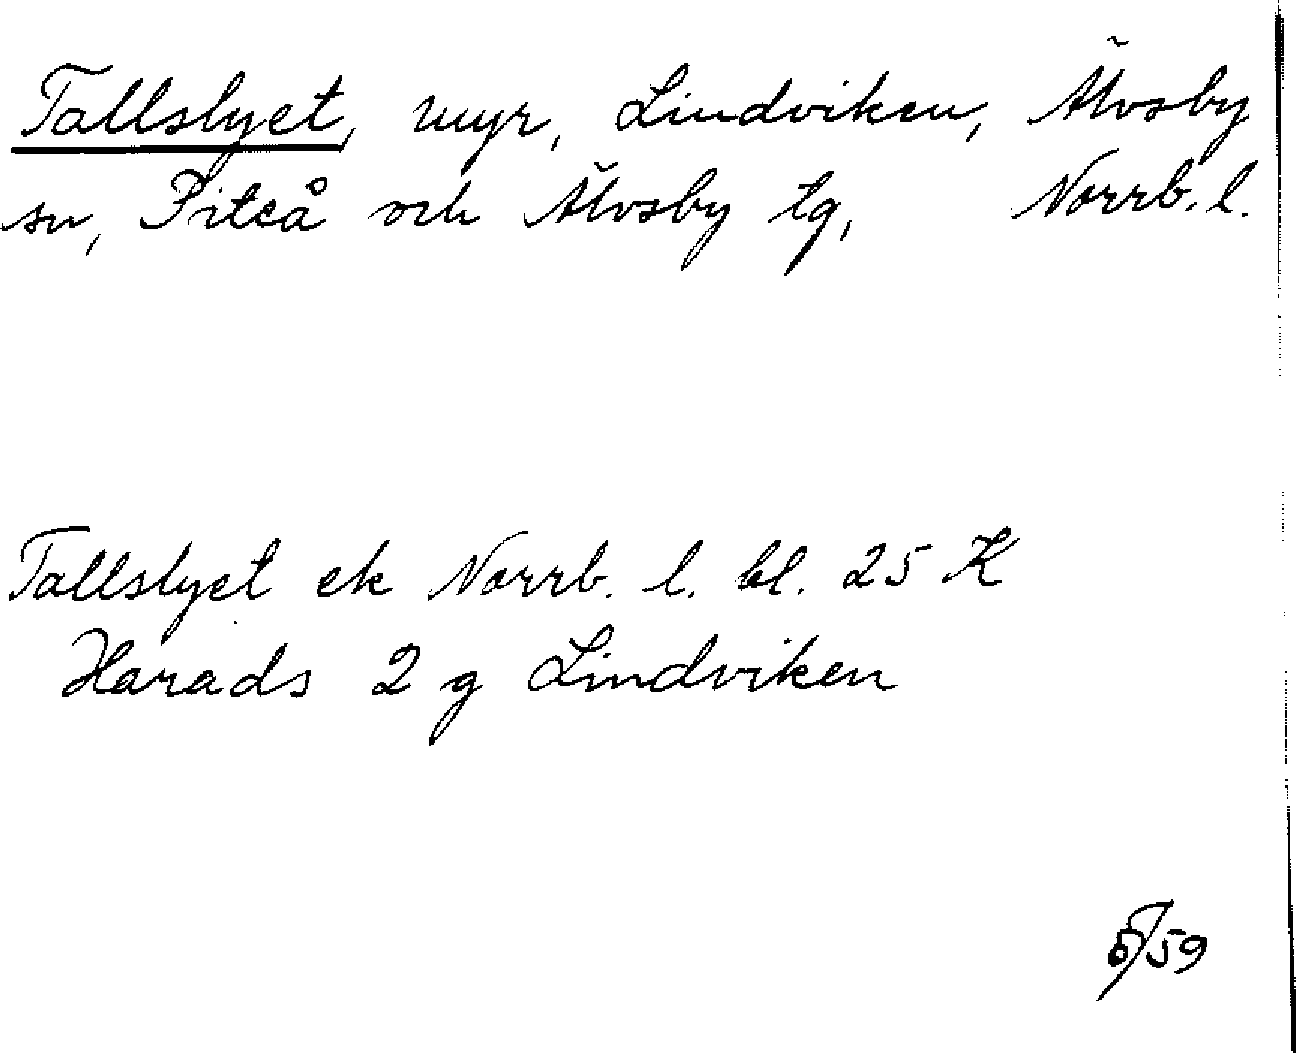 Tallslyet, myr, Lindviken, Älvsby
sn, Piteå och Älvsby tg, Norrb. l.
Tallslyet ek Norrb. l. bl. 25 K
Harads 2 g Lindviken
/59